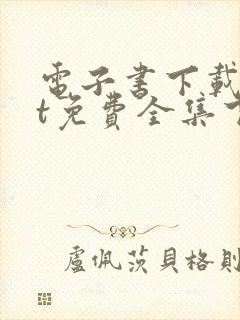 電子書下載
t免費全集
盧佩茨貝格則